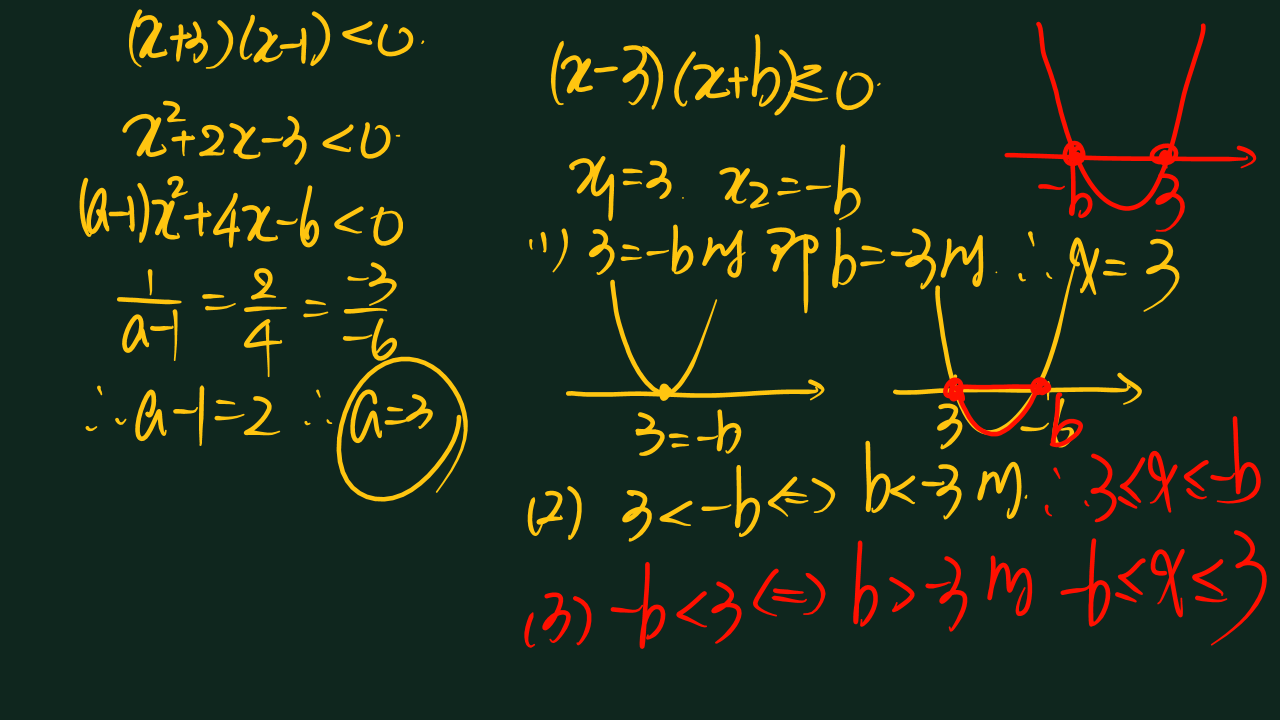 (x+3)(x-1)<0.
x²+2x-3<0.
(a-1)x²+4x-6<0
1/(a-1) = 2/4 = -3/-6
∴a-1=2 ∴ a=3
(x-3)(x+b)≤0.
x₁=3. x₂=-b
-b 3
(1) 3=-b 时 即 b=-3时. ∴ x=3
3=-b
3 -b
(2) 3<-b⇔ b<-3时. ∴ 3≤x≤-b
(3) -b<3⇔ b>-3时 -b≤x≤3